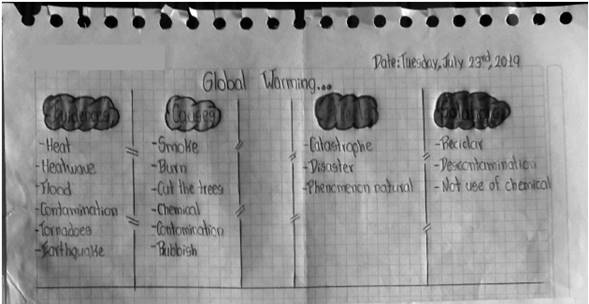 Date: Tuesday, July 23rd, 2019
Global Warming...
Evidences
-Heat
-Heatwave
-Flood
-Contamination
-Tornadoes
-Earthquake
Causes
-Smoke
-Burn
-Cut the trees
-Chemical
-Contamination
-Rubbish
-Catastrophe
-Disaster
-Phenomenon natural
Solutions
-Reciclar
-Descontamination
-Not use of chemical